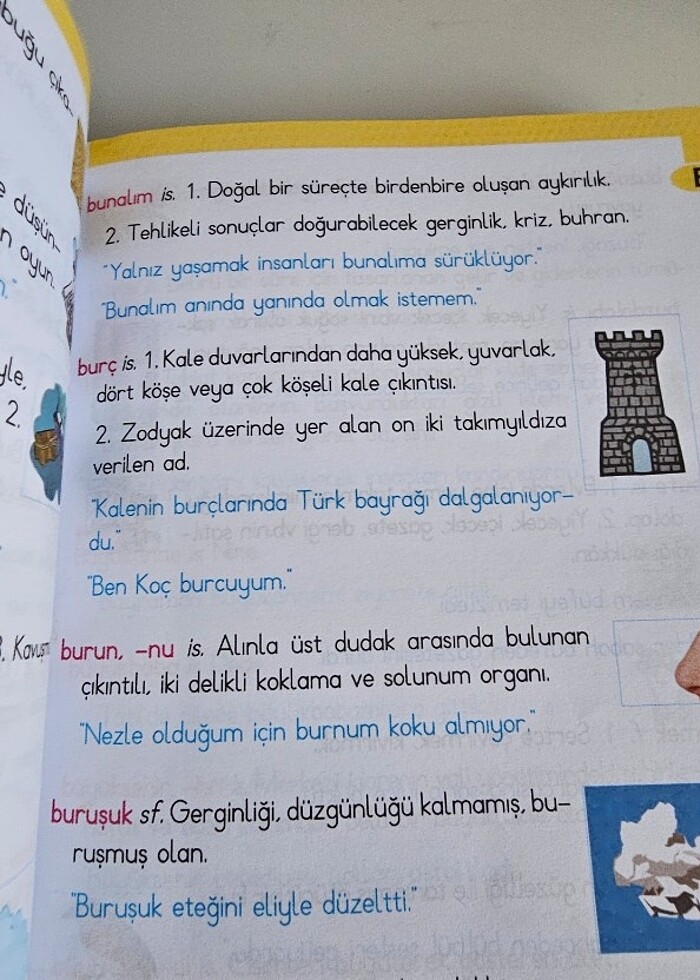 buğu çıka-
düşün-
n oyun.
yle,
2.
bunalım is. 1. Doğal bir süreçte birdenbire oluşan aykırılık.
2. Tehlikeli sonuçlar doğurabilecek gerginlik, kriz, buhran.
"Yalnız yaşamak insanları bunalıma sürüklüyor."
"Bunalım anında yanında olmak istemem."
burç is. 1. Kale duvarlarından daha yüksek, yuvarlak,
dört köşe veya çok köşeli kale çıkıntısı.
2. Zodyak üzerinde yer alan on iki takımyıldıza
verilen ad.
"Kalenin burçlarında Türk bayrağı dalgalanıyor-
du."
"Ben Koç burcuyum."
burun, -nu is. Alınla üst dudak arasında bulunan
çıkıntılı, iki delikli koklama ve solunum organı.
"Nezle olduğum için burnum koku almıyor."
buruşuk sf. Gerginliği, düzgünlüğü kalmamış, bu-
ruşmuş olan.
"Buruşuk eteğini eliyle düzeltti."